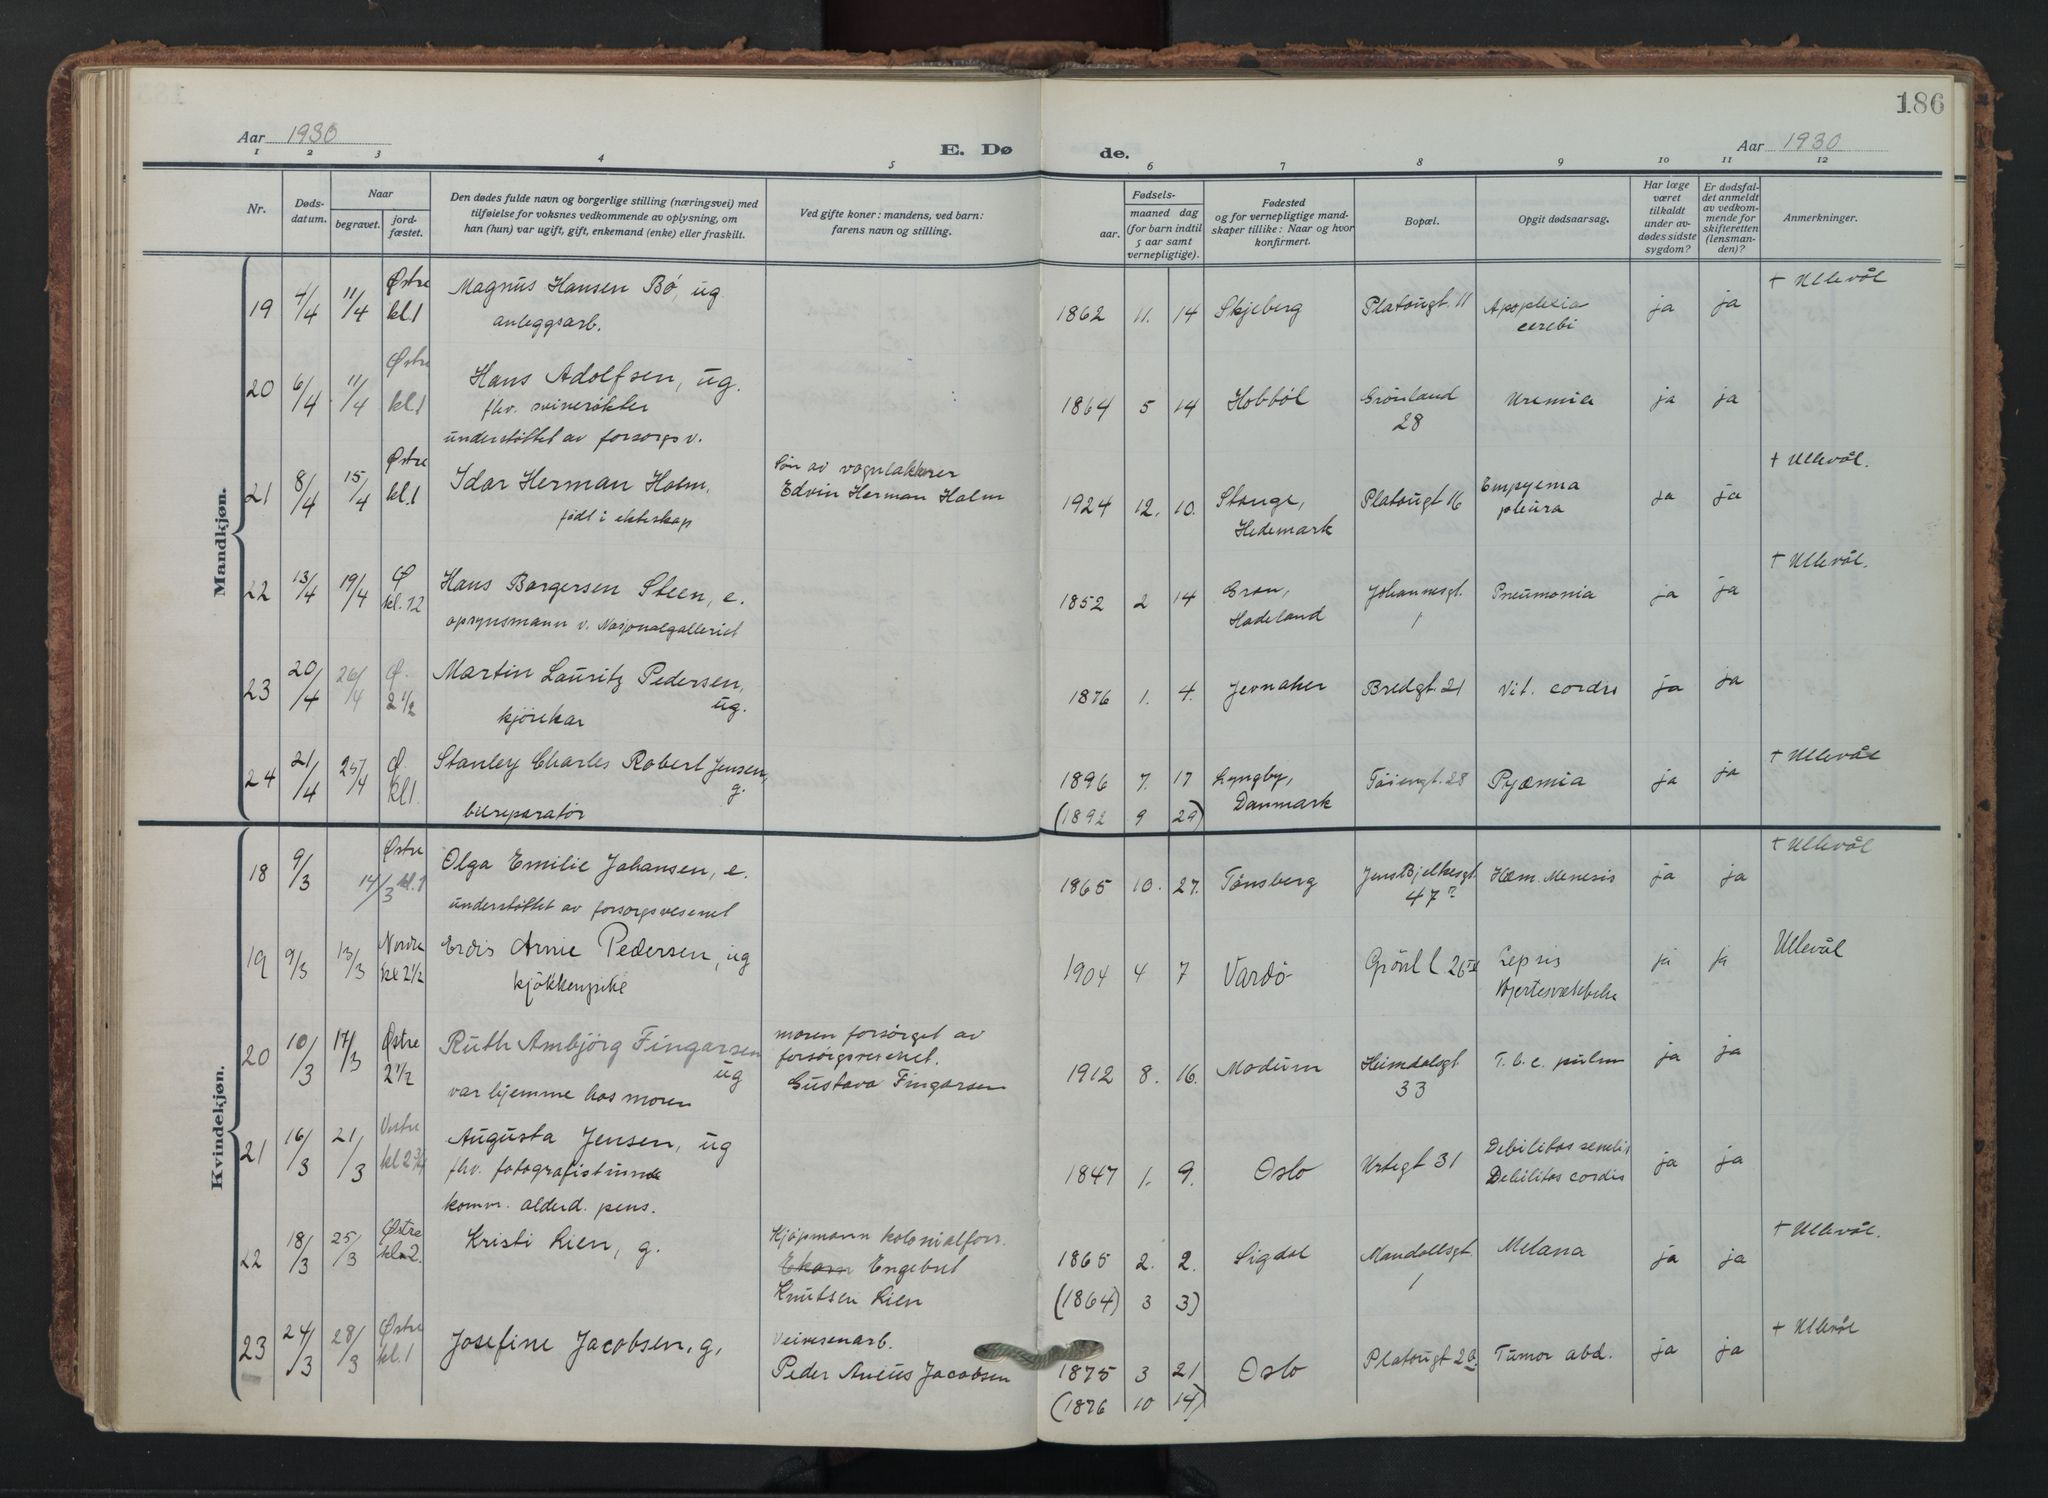 186
Aar 1930
E. Dø
de.
Aar 1930
1 2 3 4 5 6 7 8 9 10 11 12
Nr.
Døds-
datum.
Naar
begravet.
jord-
fæstet.
Den dødes fulde navn og borgerlige stilling (næringsvei) med
tilføielse for voksnes vedkommende av oplysning, om
han (hun) var ugift, gift, enkemand (enke) eller fraskilt.
Ved gifte koner: mandens, ved barn:
farens navn og stilling.
Fødsels-
aar.
maaned dag
(for barn indtil
5 aar samt
vernepligtige).
Fødested
og for vernepligtige mand-
skaper tillike: Naar og hvor
konfirmert.
Bopæl.
Opgit dødsaarsag.
Har læge
været
tilkaldt
under av-
dødes sidste
sygdom?
Er dødsfal-
det anmeldt
av vedkom-
mende for
skifteretten
(lensman-
den)?
Anmerkninger.
Mandkjøn.
19 4/4 11/4 Østre kl.1
Magnus Hansen Bø, ug
anleggsarb.
1862 11. 14 Skjeberg Platougt. 11 Apoplexia
cerebi
ja ja + Ullevål
20 6/4 11/4 Østre kl.1
Hans Adolfsen, ug.
fhv. svinerøkter
understøttet av forsorgsv.
1864 5 14 Hobböl Grønland
28
Uremia ja ja
21 8/4 15/4 Østre kl.1
Idar Herman Holm,
født i ekteskap
Søn av vognlakkerer
Edvin Herman Holm
1924 12. 10. Stange,
Hedemark
Platougt 16 Empyema
pleura
ja ja + Ullevål.
22 13/4 19/4 Ø kl. 12
Hans Borgersen Steen, e.
opsynsmann v. Nasjonalgalleriet
1852 2 14 Gran,
Hadeland
Johannesgt.
1
Pneumonia ja ja + Ullevål.
23 20/4 26/4 Ø. 2 1/2
Martin Lauritz Pedersen,
ug.
kjørekar
1876 1. 4. Jevnaker Bredgt. 21 Vit. cordis ja ja
24 21/4 25/4 Ø. kl 1.
Stanley Charles Robert Jensen,
g.
bilreparatør
1896 7. 17 Lyngby,
(1892 9 29) Danmark
Töiengt. 28 Pyæmia ja ja + Ullevål
Kvindekjøn.
18 9/3 14/3 Østre kl.1
Olga Emilie Johansen, e.
understøttet av forsorgsvesenet
1865 10. 27. Tønsberg Jens Bjelkesgt.
47
Hæm. Menesis ja ja + Ullevål
19 9/3 13/3 Nordre kl 2 1/2
Erdis Arnie Pedersen, ug
kjøkkenpike
1904 4 7 Vardö Grönl l. 26 Sepsis
Hjertesvekkelse
ja ja Ullevål
20 10/3 17/3 Østre 2 1/2
Ruth Ambjörg Fingarsen
ug
var hjemme hos moren
moren forsørget av
forsörgsvesenet.
Gustava Fingarsen
1912 8. 16. Modum Heimdalsgt
33
T. b. c. pulm ja ja
21 16/3 21/3 Vestre kl 2 3/4
Augusta Jensen, ug
fhv. fotografistinne
komm. alderd. pens.
1847 1. 9. Oslo Urtegt 31 Debilitas senilis
Debilitas cordis
ja ja
22 18/3 25/3 Østre kl. 2.
Kristi Lien, g.
Kjøpmann kolonialforr.
Engebret
Knutsen Lien
1865 2. 2. Sigdal Mandallsgt.
(1864) 3 3) 1
Melana ja ja + Ullevål.
23 24/3 28/3 Østre kl. 1
Josefine Jacobsen, g,
Veivesenarb.
Peder Aneus Jacobsen
1875 3 21 Oslo Platougt 26 Tumor abd. ja ja + Ullevål
(1876 10 14)